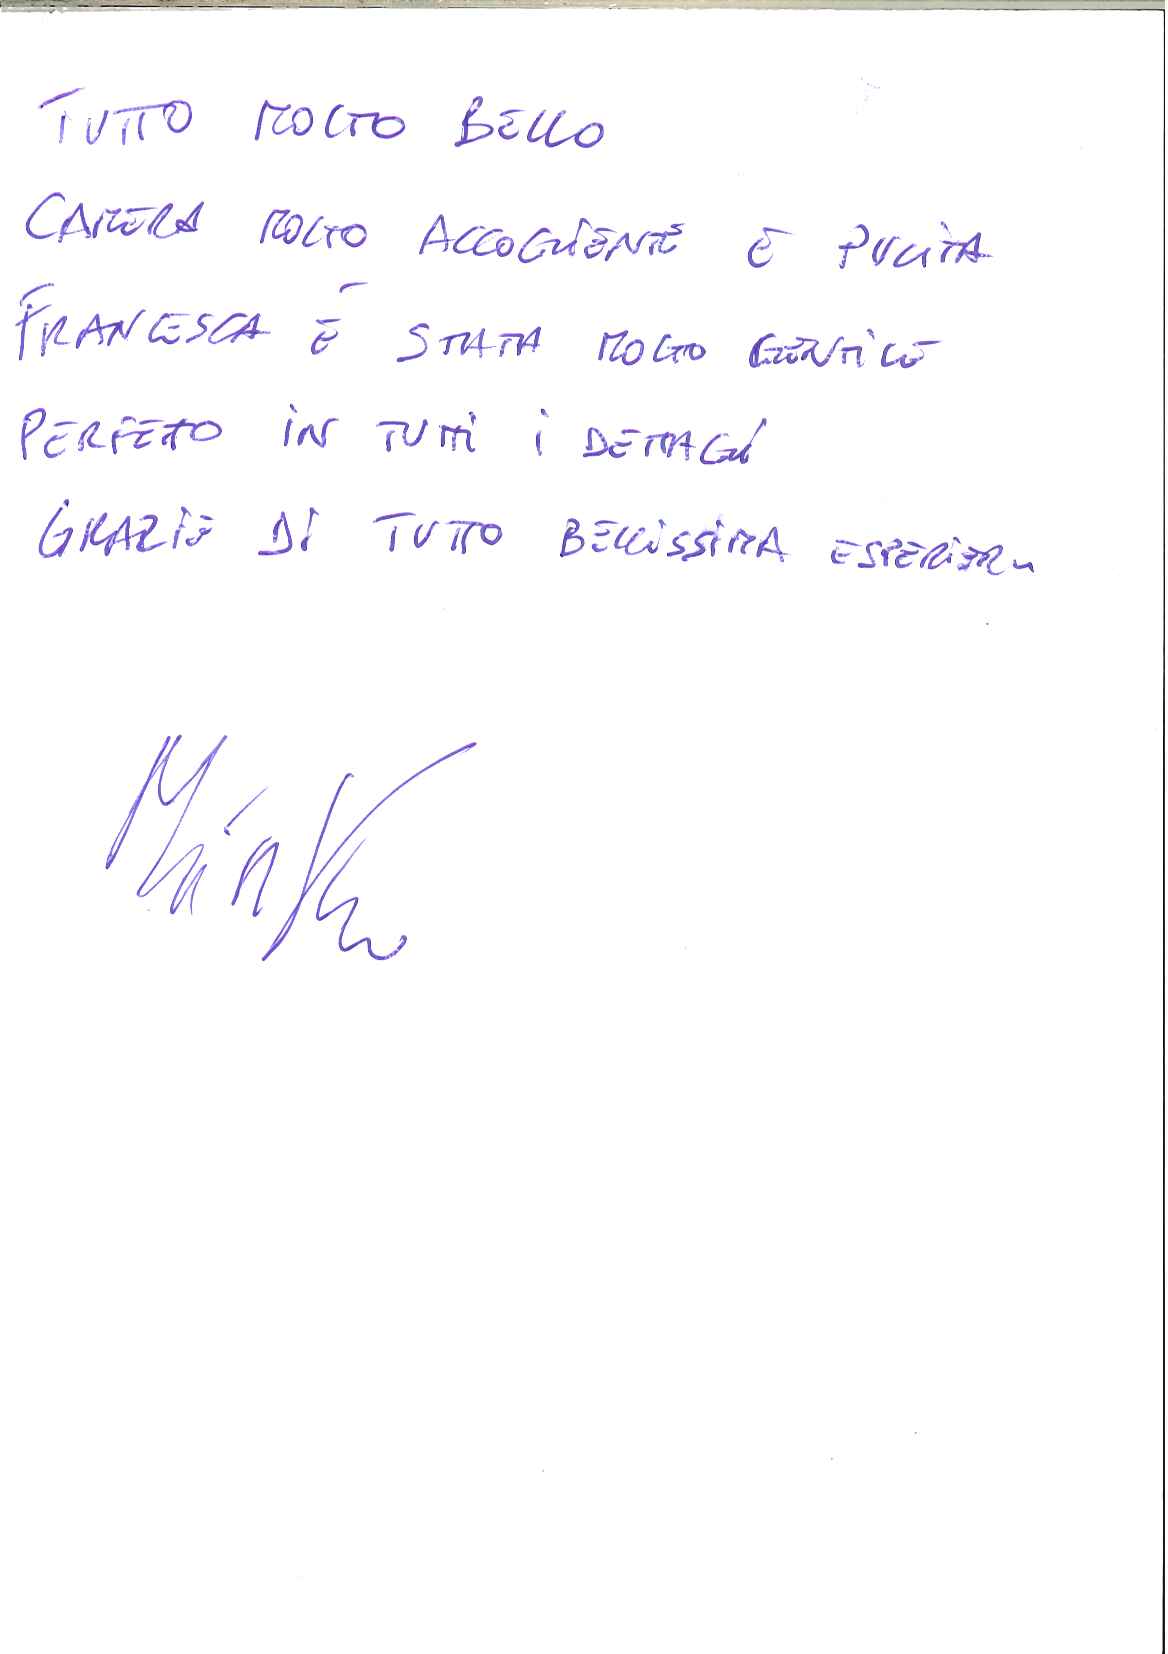 TUTTO MOLTO BELLO
CAMERA MOLTO ACCOGLIENTE E PULITA
FRANCESCA È STATA MOLTO GENTILE
PERFETTO IN TUTTI I DETTAGLI
GRAZIE DI TUTTO BELLISSIMA